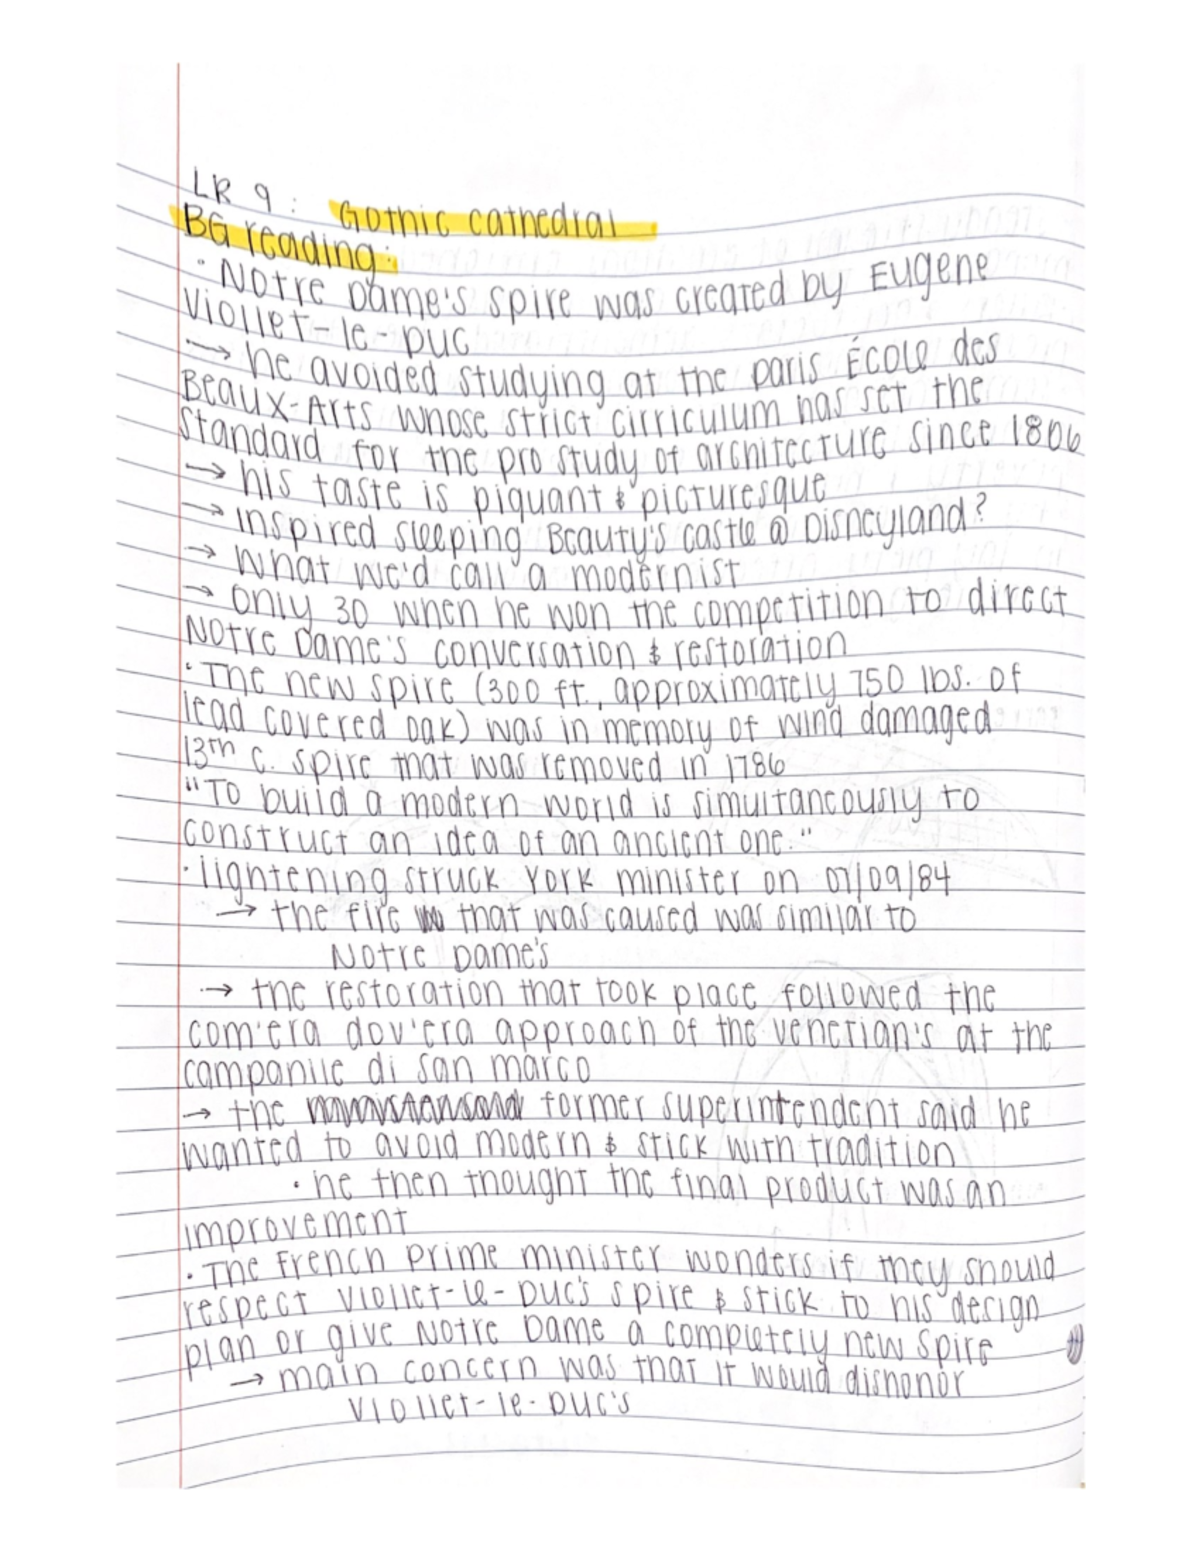 LR 9: Gothic cathedral
BG reading:
· Notre Dame's spire was created by Eugene
Viollet-le-Duc
→ he avoided studying at the paris École des
Beaux-Arts whose strict cirriculum has set the
standard for the pro study of architecture since 1806
→ his taste is piquant & picturesque
→ inspired sleeping Beauty's castle @ Disneyland?
→ what we'd call a modernist
→ only 30 when he won the competition to direct
Notre Dame's conversation & restoration
· The new spire (300 ft., approximately 750 lbs. of
lead covered oak) was in memory of wind damaged
13th c. spire that was removed in 1786
"To build a modern world is simultaneously to
construct an idea of an ancient one."
· lightening struck York minister on 07/09/84
→ the fire that was caused was similar to
Notre Dame's
→ the restoration that took place followed the
com'era dov'era approach of the venetian's at the
campanile di san marco
→ the former superintendent said he
wanted to avoid modern & stick with tradition
· he then thought the final product was an
improvement
· The French Prime minister wonders if they should
respect Viollet-le-Duc's spire & stick to his design
plan or give Notre Dame a completely new spire
→ main concern was that it would dishonor
Viollet-le-Duc's